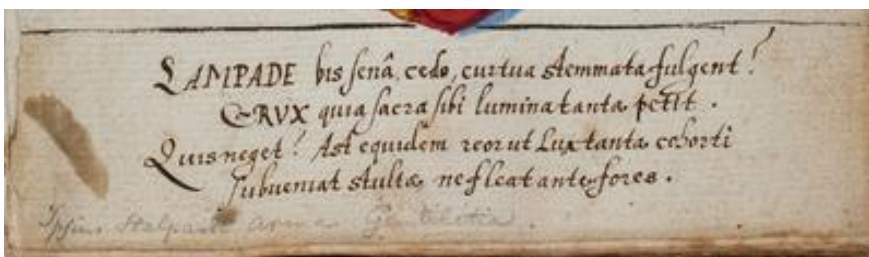 LAMPADE bis senâ, cedo, cur tua stemmata fulgent?
CRVX quia sacra sibi lumina tanta petit.
Quis neget? Ast equidem reor ut Lux tanta cohorti
subueniat stultæ, ne fleat ante fores.
Ipsius Stalpaert arma Gentilitia